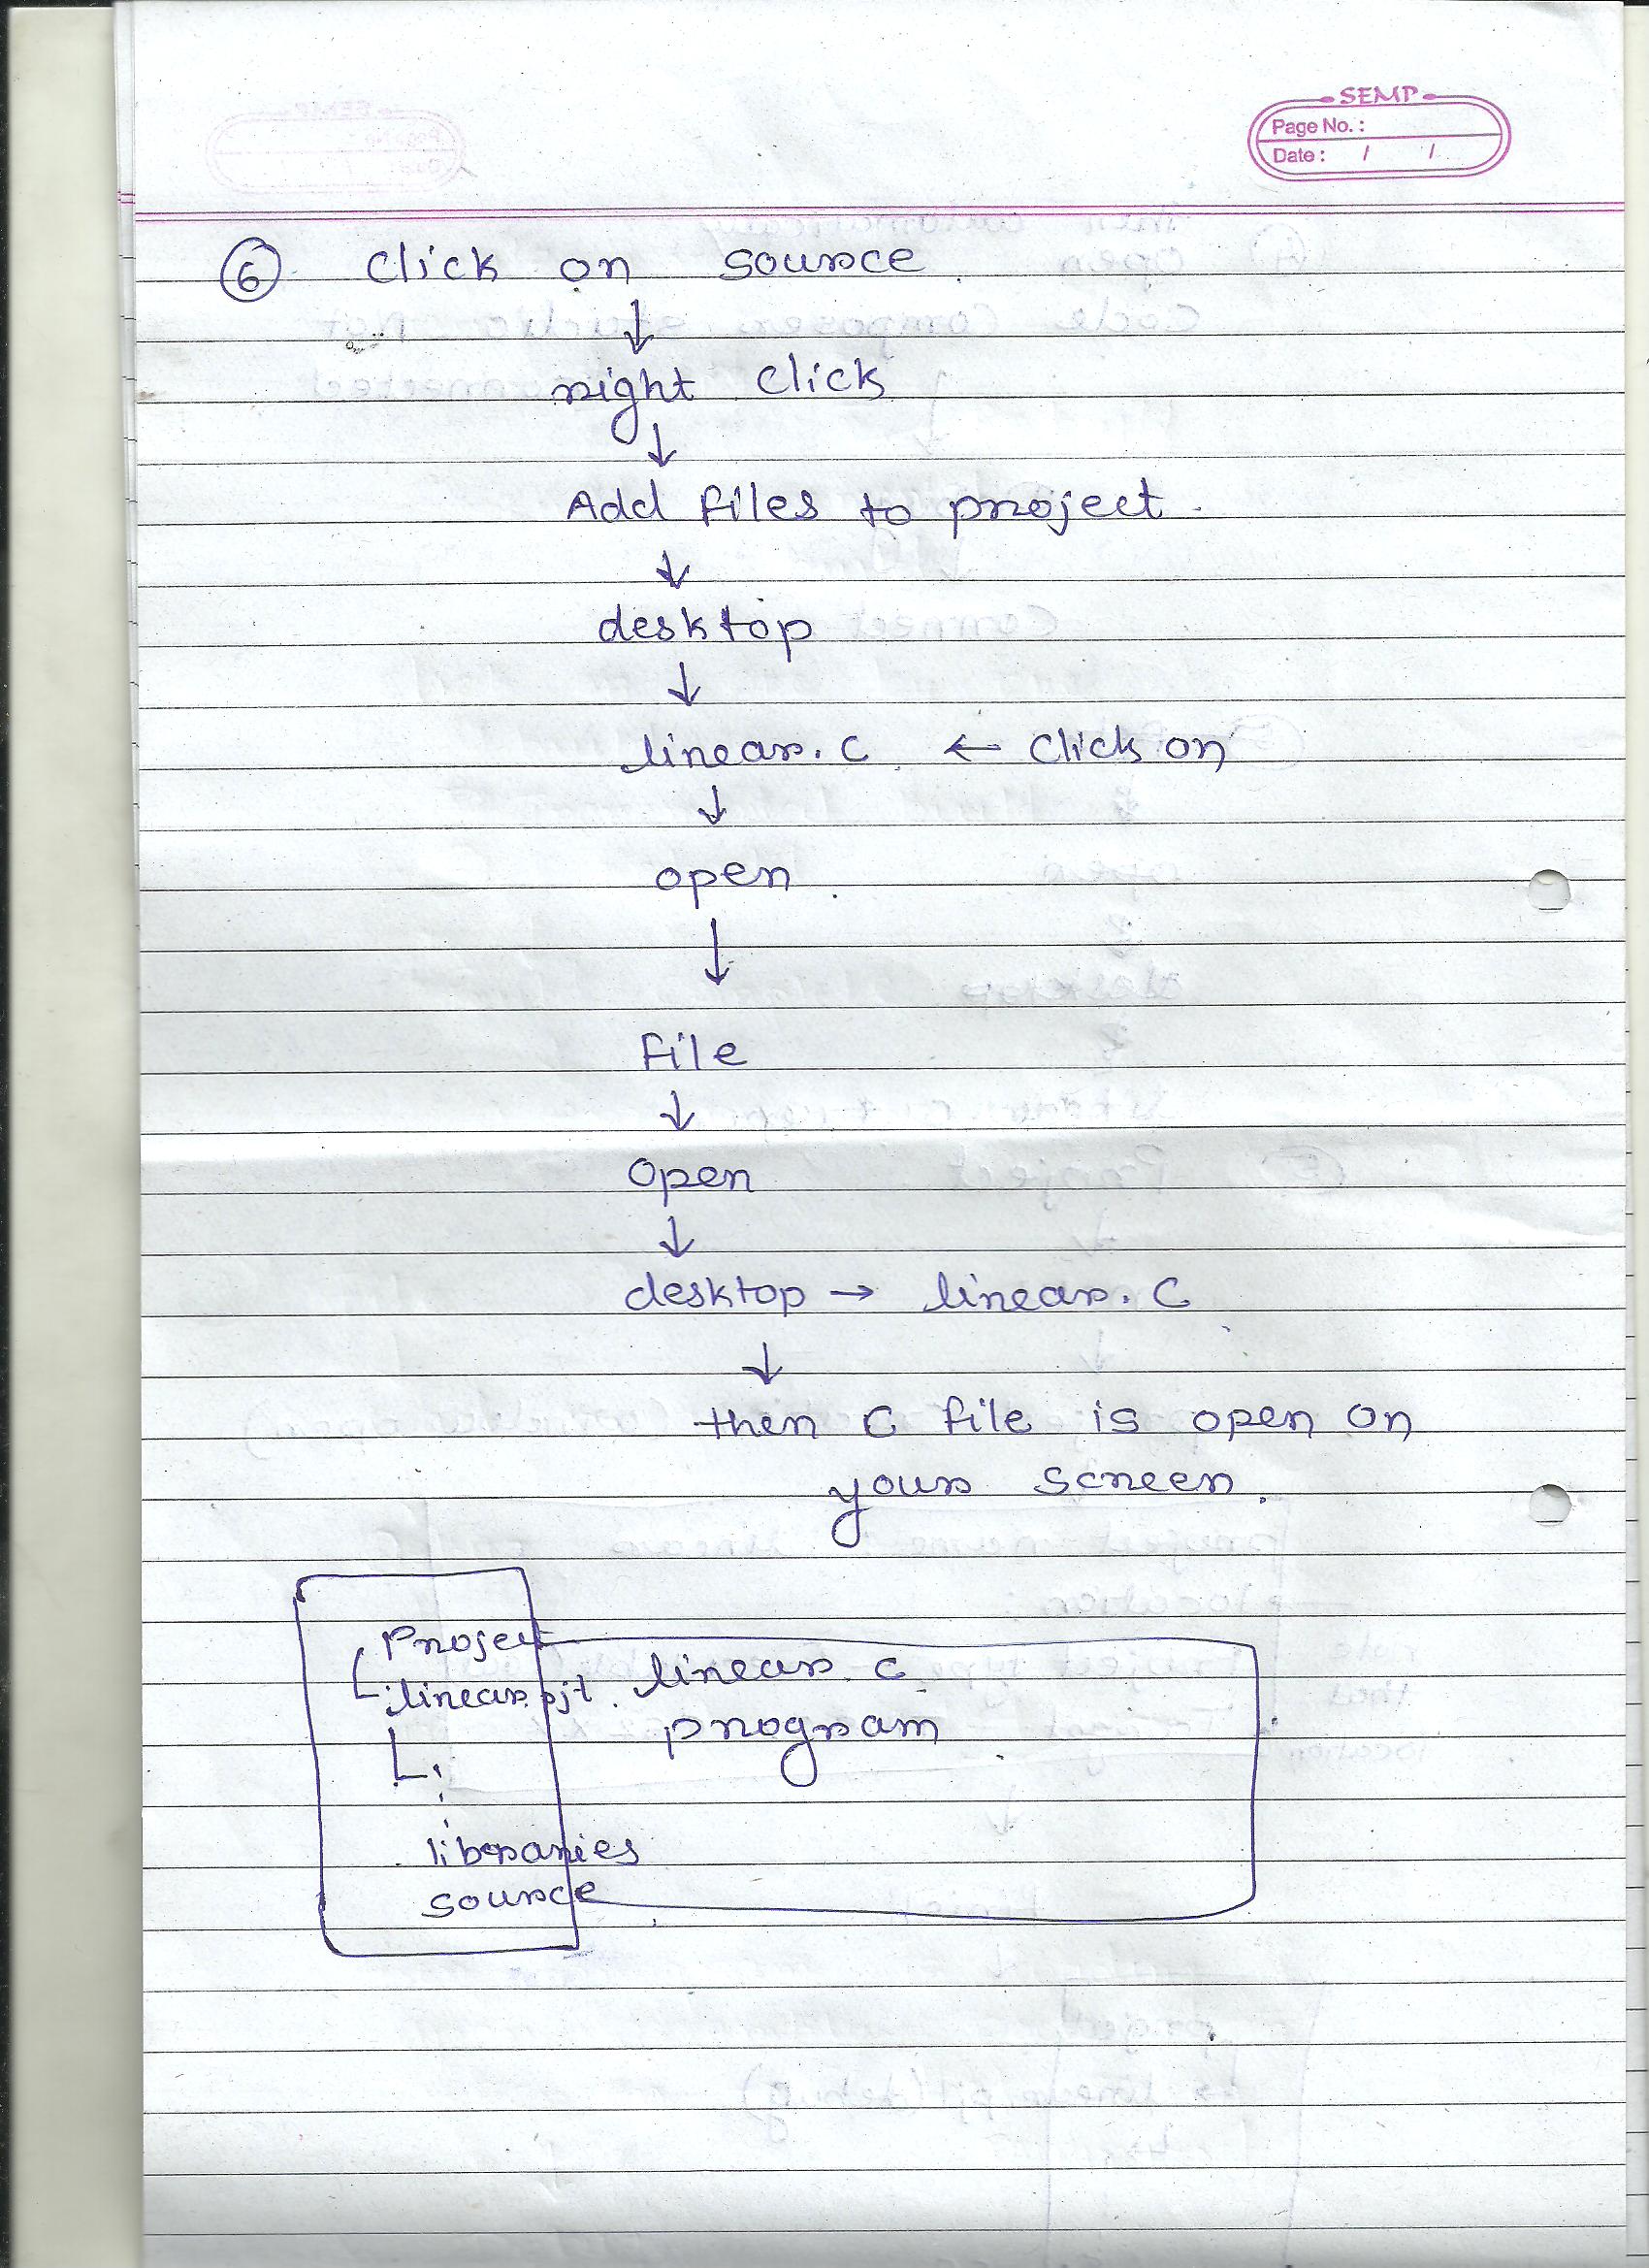 SEMP
Page No. :
Date : / /
⑥ Click on source
↓
right click
↓
Add files to project.
↓
desktop
↓
linear. C ← Click on
↓
open
↓
file
↓
Open
↓
desktop → linear. C
↓
then C file is open on
your screen.
Project
linear.pjt.
libraries
source
linear. C
program